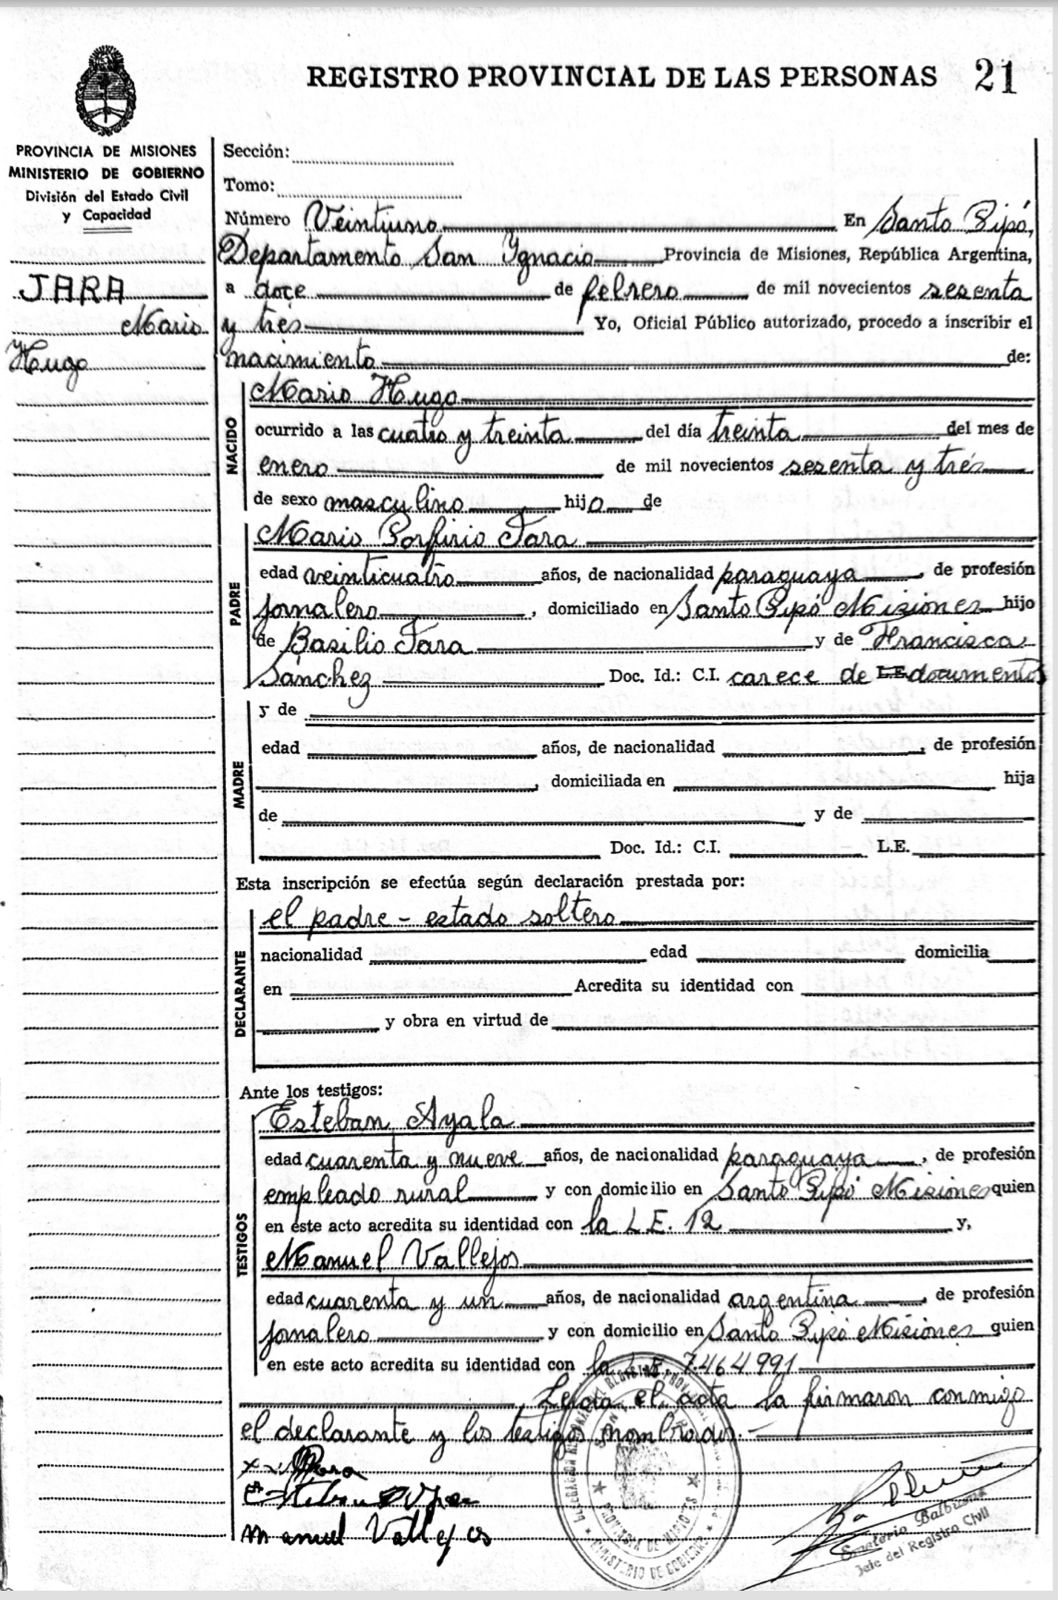 REGISTRO PROVINCIAL DE LAS PERSONAS 21
PROVINCIA DE MISIONES
MINISTERIO DE GOBIERNO
División del Estado Civil
y Capacidad
JARA
Mario
Hugo
Sección:
Tomo:
Número Veintiuno En Santo Pipó,
Departamento San Ignacio Provincia de Misiones, República Argentina,
a doce de febrero de mil novecientos sesenta
y tres Yo, Oficial Público autorizado, procedo a inscribir el
nacimiento de:
NACIDO
Mario Hugo
ocurrido a las cuatro y treinta del día treinta del mes de
enero de mil novecientos sesenta y trés
de sexo masculino hijo de
PADRE
Mario Porfirio Jara
edad veinticuatro años, de nacionalidad paraguaya, de profesión
jornalero, domiciliado en Santo Pipó Misiones hijo
de Basilio Jara y de Francisca
Sánchez Doc. Id.: C.I. carece de L.E. documentos
MADRE
y de
edad años, de nacionalidad , de profesión
, domiciliada en hija
de y de
Doc. Id.: C.I. L.E.
Esta inscripción se efectúa según declaración prestada por:
DECLARANTE
el padre - estado soltero
nacionalidad edad domicilia
en Acredita su identidad con
y obra en virtud de
Ante los testigos:
TESTIGOS
Esteban Ayala
edad cuarenta y nueve años, de nacionalidad paraguaya, de profesión
empleado rural y con domicilio en Santo Pipó Misiones quien
en este acto acredita su identidad con la L.E. 12 y,
Manuel Vallejos
edad cuarenta y un años, de nacionalidad argentina, de profesión
jornalero y con domicilio en Santo Pipó Misiones quien
en este acto acredita su identidad con la L.E. 7.464.991
Leída el acta la firmaron conmigo
el declarante y los testigos nombrados.-
Jara
Esteban Ayala
Manuel Vallejos
PROVINCIA DE MISIONES
MINISTERIO DE GOBIERNO
Jefe del Registro Civil